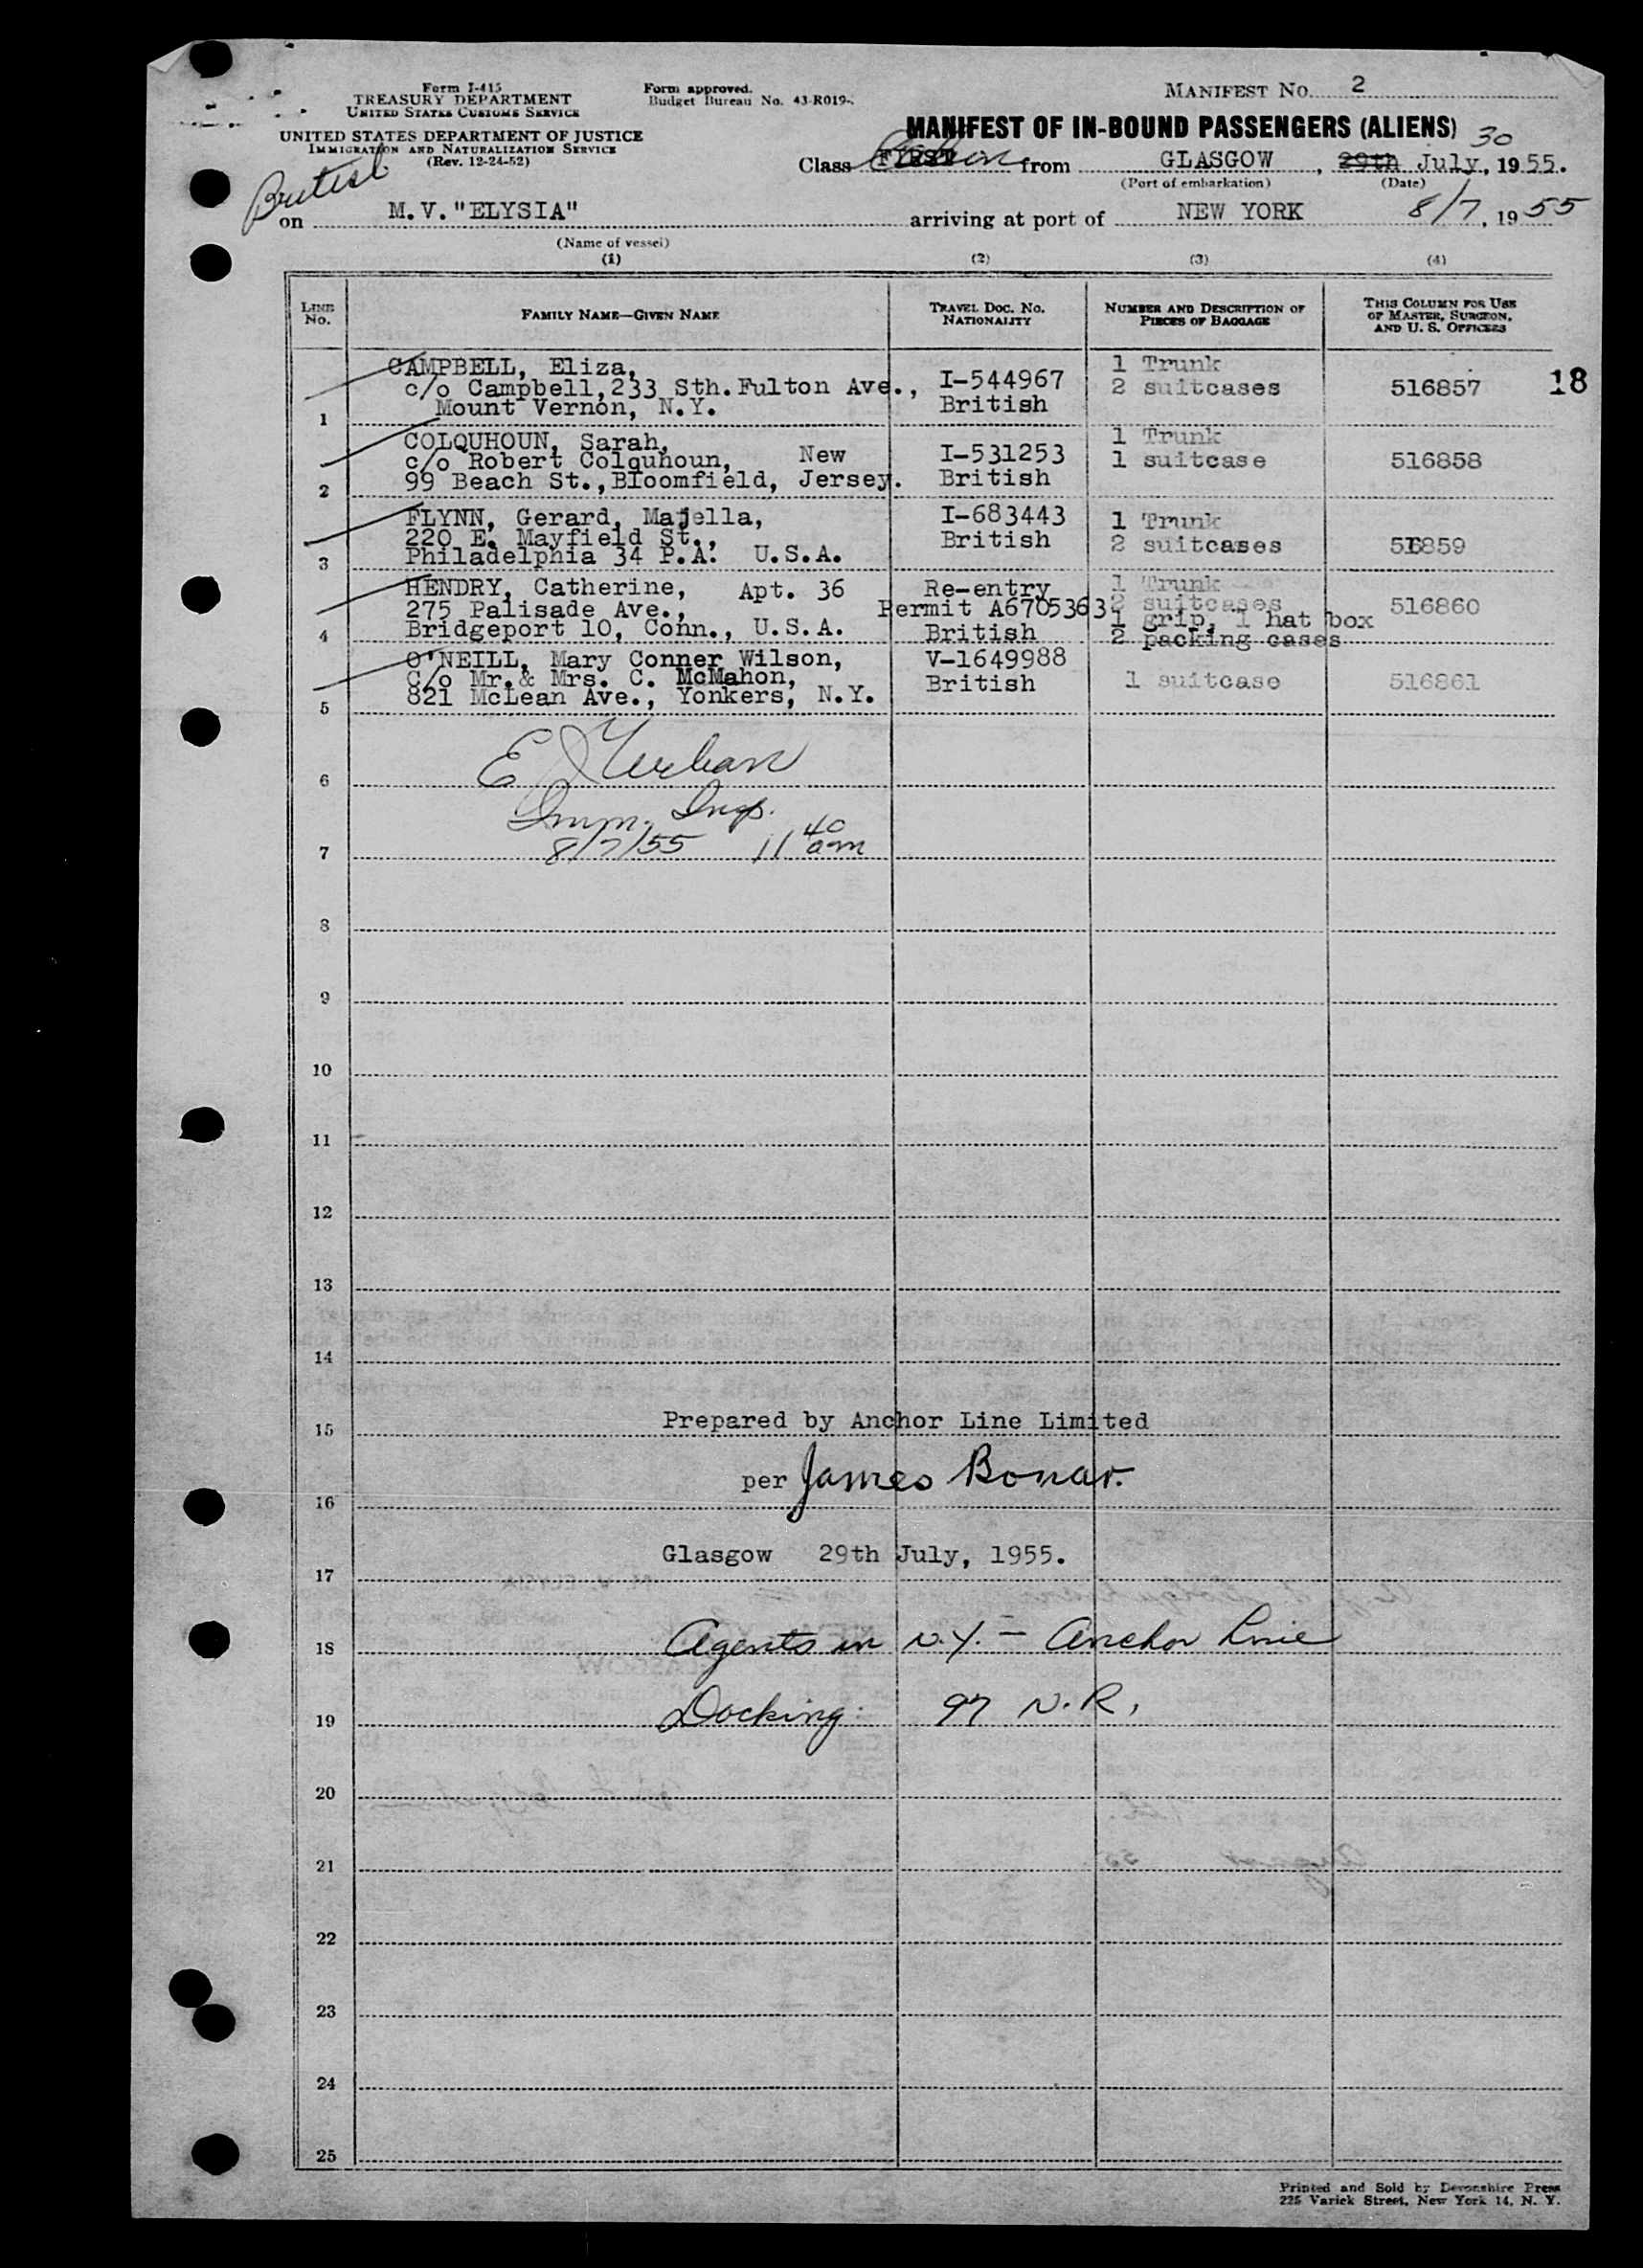 Form I-415
TREASURY DEPARTMENT
UNITED STATES CUSTOMS SERVICE
UNITED STATES DEPARTMENT OF JUSTICE
IMMIGRATION AND NATURALIZATION SERVICE
(Rev. 12-24-52)
Form approved.
Budget Bureau No. 43-R019-
MANIFEST NO. 2
MANIFEST OF IN-BOUND PASSENGERS (ALIENS)
30
Class FIRST Cabin from GLASGOW, 29th July, 1955.
(Port of embarkation) (Date)
British
on M.V. "ELYSIA" arriving at port of NEW YORK 8/7, 1955
(Name of vessel)
(1) (2) (3) (4)
LINE NO.
FAMILY NAME—GIVEN NAME
TRAVEL DOC. NO.
NATIONALITY
NUMBER AND DESCRIPTION OF
PIECES OF BAGGAGE
THIS COLUMN FOR USE
OF MASTER, SURGEON,
AND U. S. OFFICERS
CAMPBELL, Eliza, 1 Trunk
c/o Campbell, 233 Sth. Fulton Ave., I-544967 2 suitcases 516857 18
1 Mount Vernon, N.Y. British
COLQUHOUN, Sarah, 1 Trunk
c/o Robert Colquhoun, New I-531253 1 suitcase 516858
2 99 Beach St., Bloomfield, Jersey. British
FLYNN, Gerard, Majella, I-683443 1 Trunk
220 E. Mayfield St., British 2 suitcases 516859
3 Philadelphia 34 P.A. U.S.A.
HENDRY, Catherine, Apt. 36 Re-entry 1 Trunk
275 Palisade Ave., Permit A6705363 2 suitcases 516860
1 grip, 1 hat box
4 Bridgeport 10, Conn., U.S.A. British 2 packing cases
O'NEILL, Mary Conner Wilson, V-1649988
C/o Mr. & Mrs. C. McMahon, British 1 suitcase 516861
5 821 McLean Ave., Yonkers, N.Y.
6 E J
Imm. Insp.
7 8/7/55 11 40 am
8
9
10
11
12
13
14
15 Prepared by Anchor Line Limited
16 per James Bonar.
17 Glasgow 29th July, 1955.
18 Agents in N.Y. — Anchor Line
19 Docking: 97 N.R.
20
21
22
23
24
25
Printed and Sold by Devonshire Press
225 Varick Street, New York 14, N. Y.